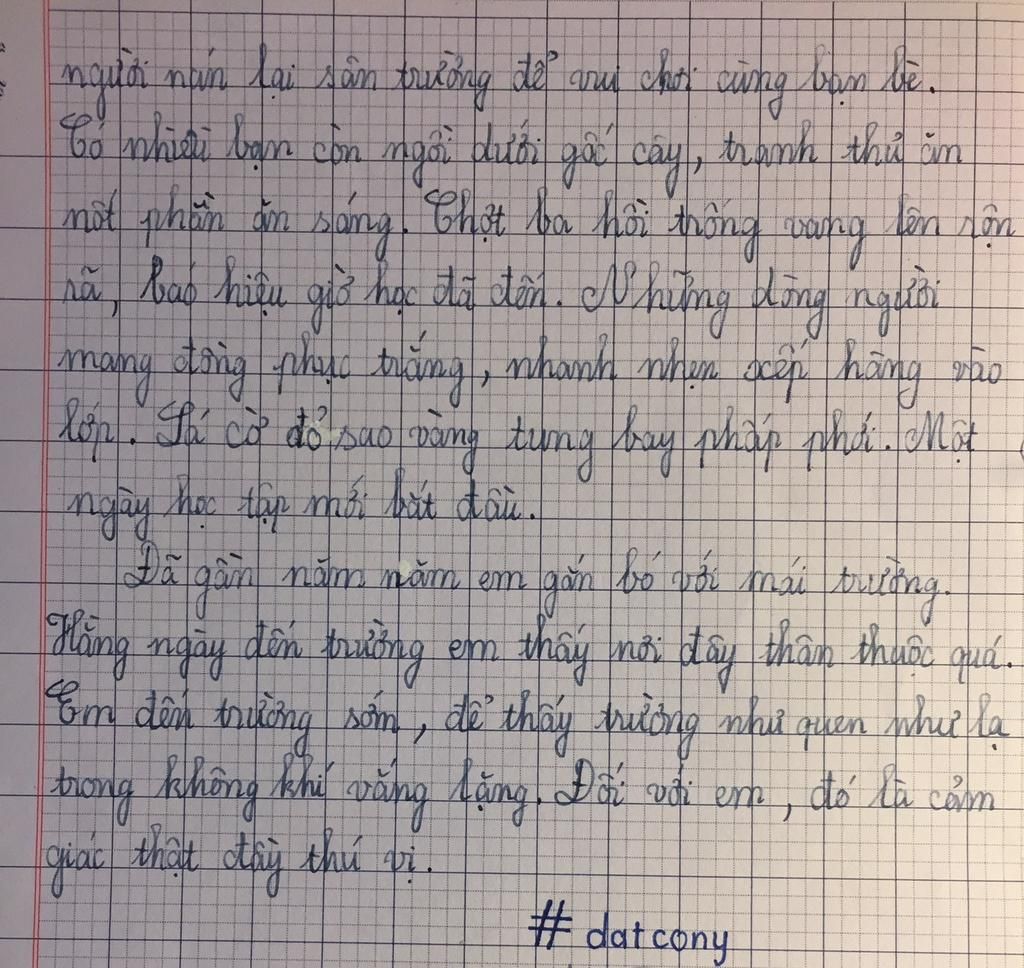 người nán lại sân trường để vui chơi cùng bạn bè.
Có nhiều bạn còn ngồi dưới gốc cây, tranh thủ ăn
nốt phần ăn sáng. Chợt ba hồi trống vang lên rộn
rã, báo hiệu giờ học đã đến. Những dòng người
mang đồng phục trắng, nhanh nhẹn xếp hàng vào
lớp. Lá cờ đỏ sao vàng tung bay phấp phới. Một
ngày học tập mới bắt đầu.
Đã gần năm năm em gắn bó với mái trường.
Hằng ngày đến trường em thấy nơi đây thân thuộc quá.
Em đến trường sớm, để thấy trường như quen như lạ
trong không khí vắng lặng. Đối với em, đó là cảm
giác thật đầy thú vị.
# datcony